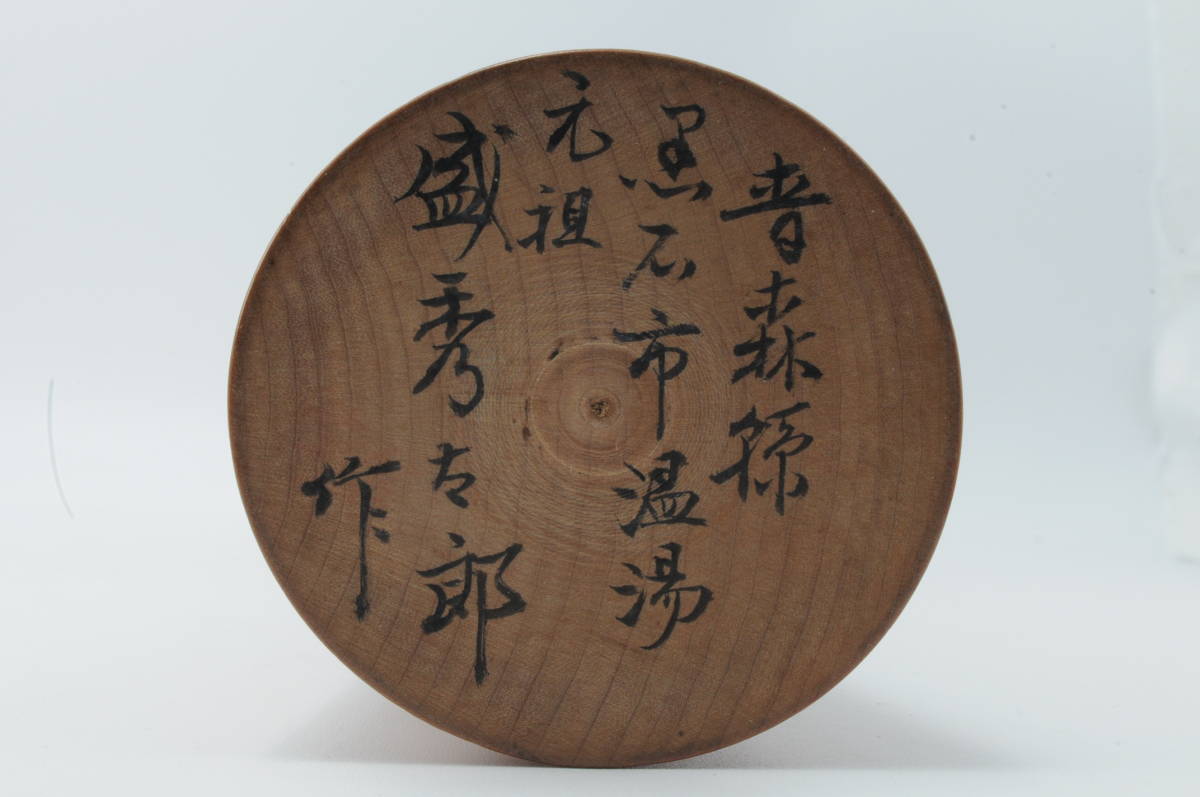 青森縣
黒石市温湯
元祖
盛秀太郎
作